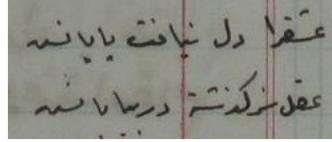 عشقرا دل نیافت پایانش
عقل سرگذشته در بیابانش